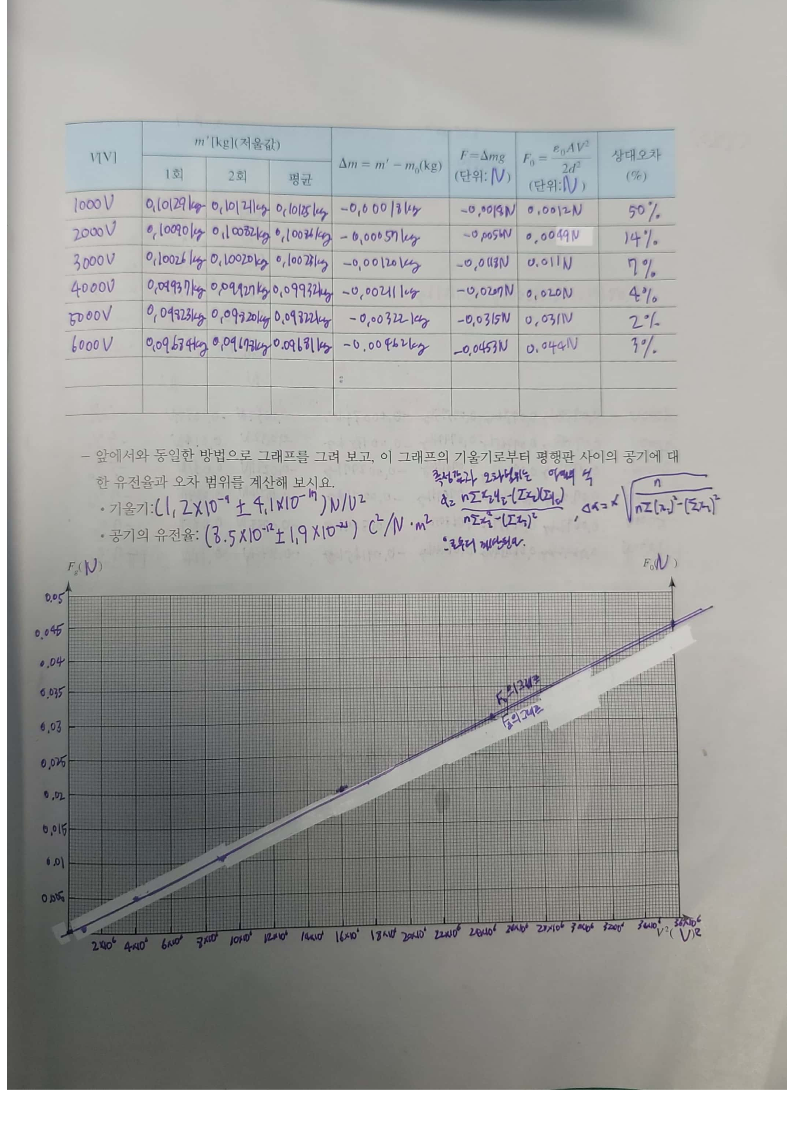 V[V] m′[kg](저울값) Δm = m′ − m₀(kg) F=Δmg (단위: N) F₀ = ε₀AV²/2d² (단위: N) 상대오차 (%)
1회 2회 평균
1000V 0,10129kg 0,10121kg 0,10125kg -0,00018kg -0,0018N 0.0012N 50%
2000V 0,10090kg 0,10082kg 0,10086kg -0,00057kg -0,0056N 0.0049N 14%
3000V 0,10026kg 0,10020kg 0,10023kg -0,00120kg -0,0118N 0.011N 7%
4000V 0,09937kg 0,09927kg 0,09932kg -0,00211kg -0,0207N 0,020N 4%
5000V 0,09823kg 0,09820kg 0,09822kg -0,00322kg -0,0315N 0,031N 2%
6000V 0,09684kg 0,09678kg 0.09681kg -0.00462kg -0.0453N 0.044N 3%
− 앞에서와 동일한 방법으로 그래프를 그려 보고, 이 그래프의 기울기로부터 평행판 사이의 공기에 대
한 유전율과 오차 범위를 계산해 보시요.
측정값과 오차범위는 아래의 식
• 기울기: (1,2×10⁻⁹ ± 4,1×10 N/V²
nΣxᵢyᵢ-(Σxᵢ)(Σyᵢ) / nΣxᵢ²-(Σxᵢ)²
√ n / nΣ(xᵢ)²-(Σxᵢ)²
• 공기의 유전율: (8.5×10⁻¹² ± 1,9×10 ) C²/N·m²
으로부터 계산된다.
(N) F₀(N)
0.05
0.045
0.04
0.035
0.03
0.025
0.02
0.015
0.01
0.005
F₀의 그래프
2×10⁶ 4×10⁶ 6×10⁶ 8×10⁶ 10×10⁶ 12×10⁶ 14×10⁶ 16×10⁶ 18×10⁶ 20×10⁶ 22×10⁶ 24×10⁶ 26×10⁶ 28×10⁶ 36×10⁶
V²(V)²